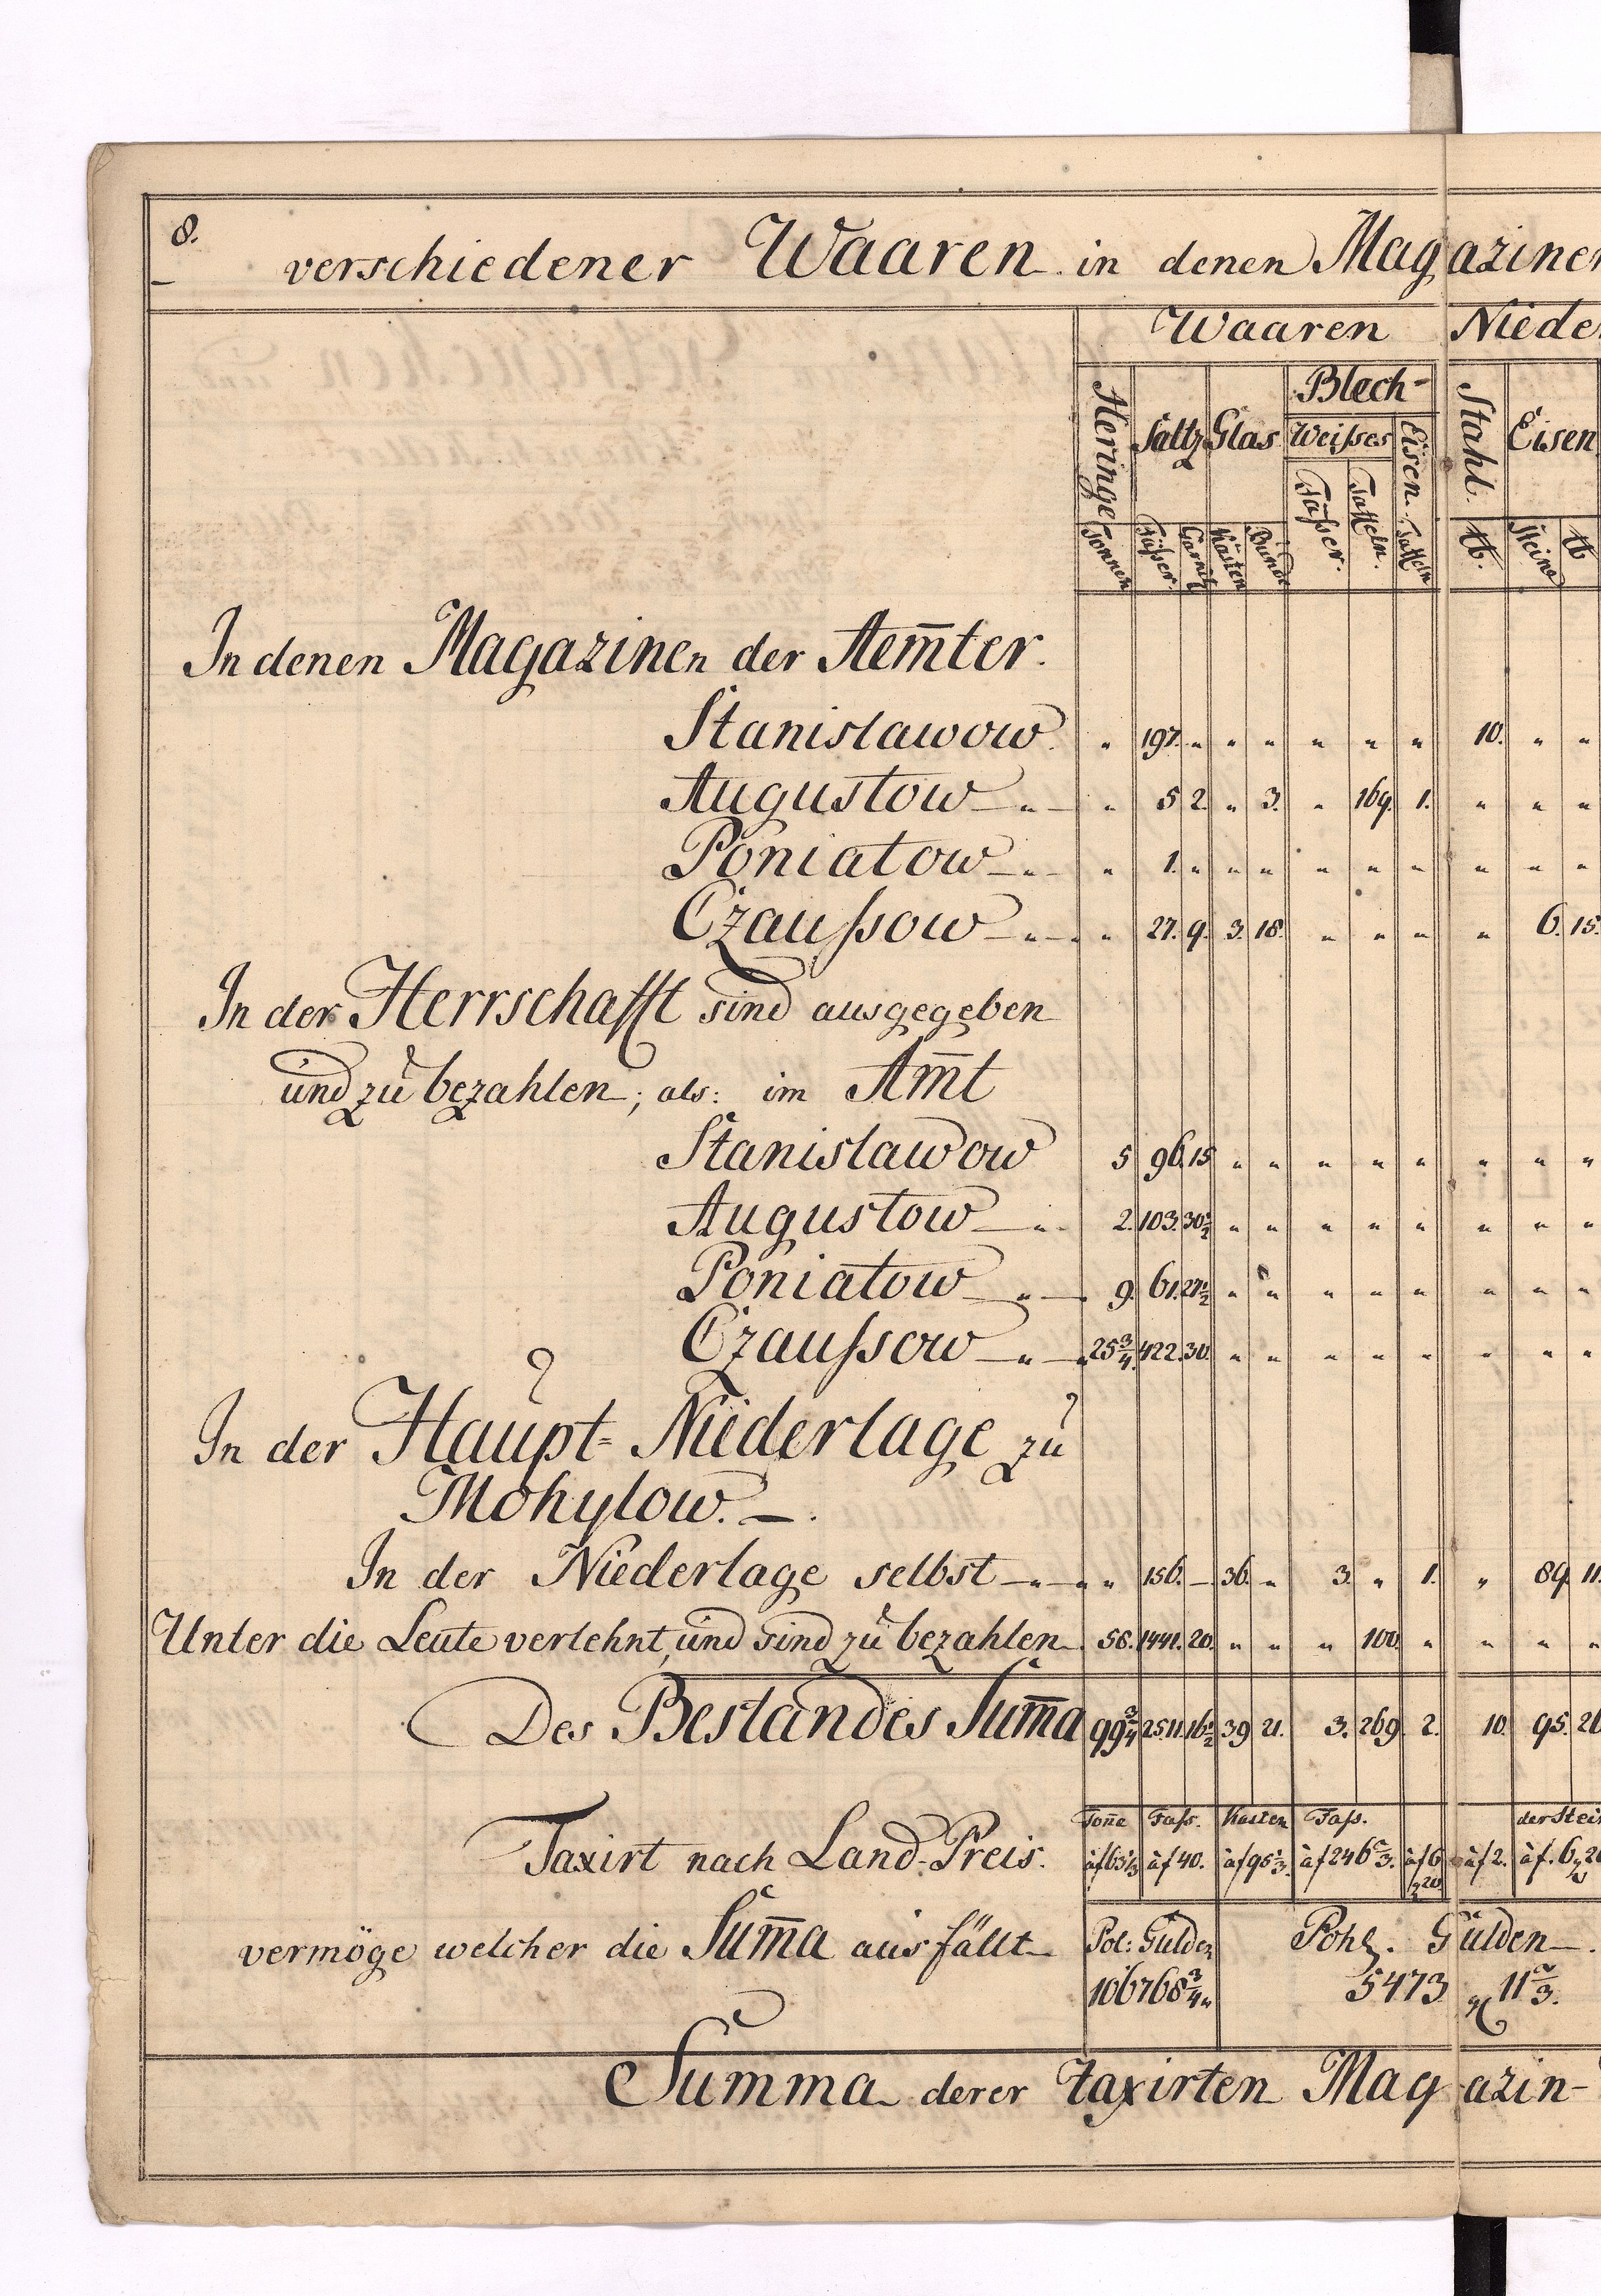 8.
verschiedener Waaren in denen Magazinen
Waaren Niede
Heringe Saltz Glas Blech- Stahl. Eisen
Weisses Eisen
Tonnen Fässer Garnitz Kästen Bünde Fässer. Taffeln. Taffeln ℔. Steine ℔
In denen Magazinen der Aem̅ter.
Stanislawow. " 197. " " " " " " 10. " "
Augustow " 5 2. " 3. " 169. 1. " " "
Poniatow " 1. " " " " " " " " "
Czaussow " 27. 9. 3. 18. " " " " 6. 15.
In der Herrschafft sind ausgegeben
und zu bezahlen; als: im Am̅t
Stanislawow 5 96. 15 " " " " " " " "
Augustow 2. 103. 30½ " " " " " " " "
Poniatow 9. 61. 27½ " " " " " " " "
Czaussow 25¾. 422. 30. " " " " " " " "
In der Haupt-Niederlage zu
Mohylow.
In der Niederlage selbst " 156. — 36. " 3. " 1. " 89. 11.
Unter die Leute verlehnt, und sind zu bezahlen 58. 1441. 20. " " " 100. " " " "
Des Bestandes Sum̅a 99¾ 2511. 16½ 39 21. 3. 269. 2. 10. 95. 26
Ton̅e Fass. Kasten Fass. der Stei
Taxirt nach Land-Preis. àf63⅓ àf40. àf95⅓. àf246⅔. àf6 àf2. àf.6
vermöge welcher die Sum̅a ausfällt Pol: Gulden Pohl. Gulden
106768¾ 5473 11⅔.
Summa derer taxirten Magazin-